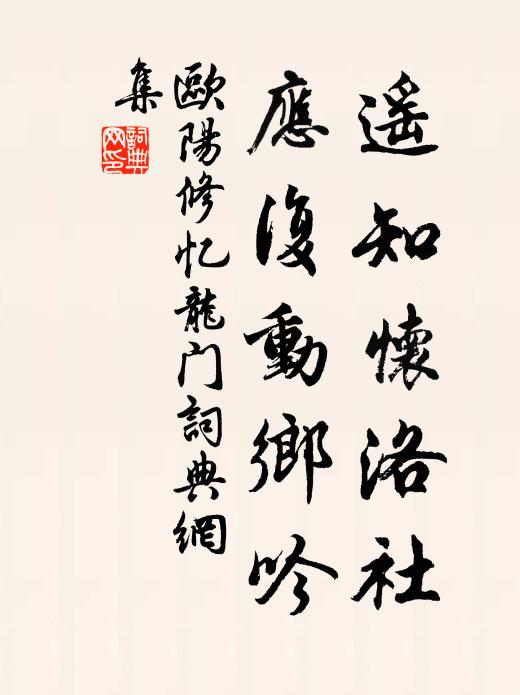 遥知懷洛社
應復動鄉吟
歐陽修忆龍门詞典網
集
詞典网印